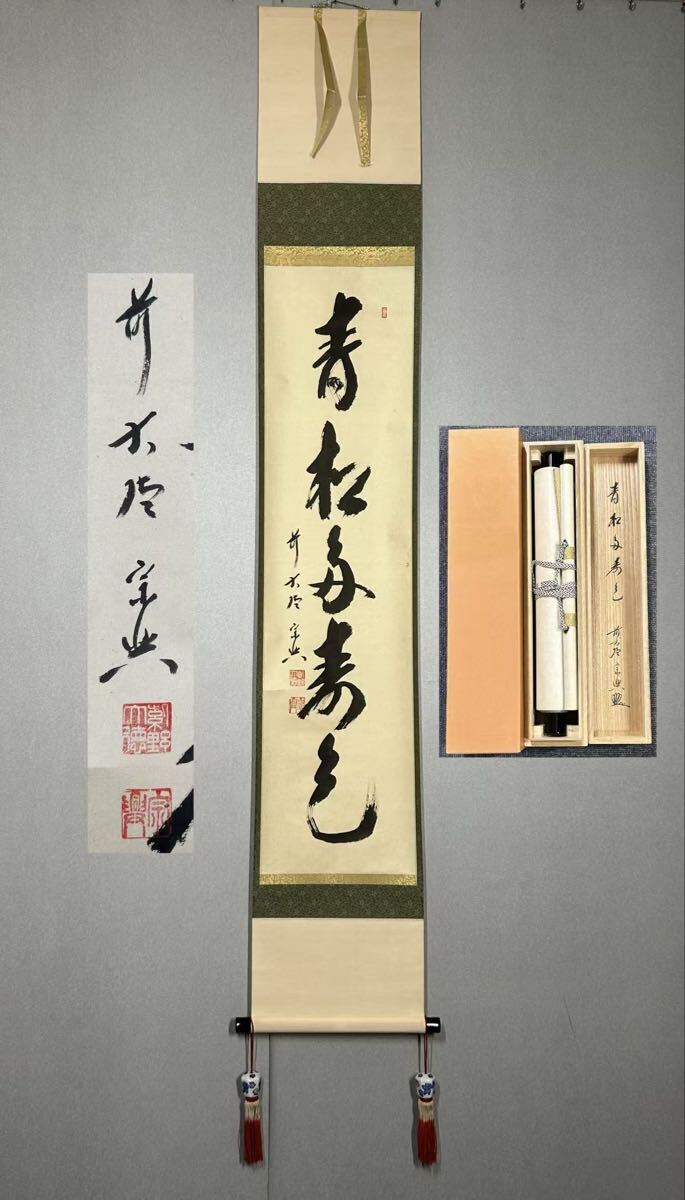 青松多寿色
前大徳 宗興
紫野
大徳
宗興
青松多寿色 前大徳宗興